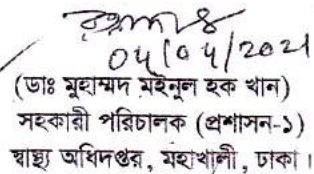 04/04/2021
(ডাঃ মুহাম্মদ মইনুল হক খান)
সহকারী পরিচালক (প্রশাসন-১)
স্বাস্থ্য অধিদপ্তর, মহাখালী, ঢাকা।